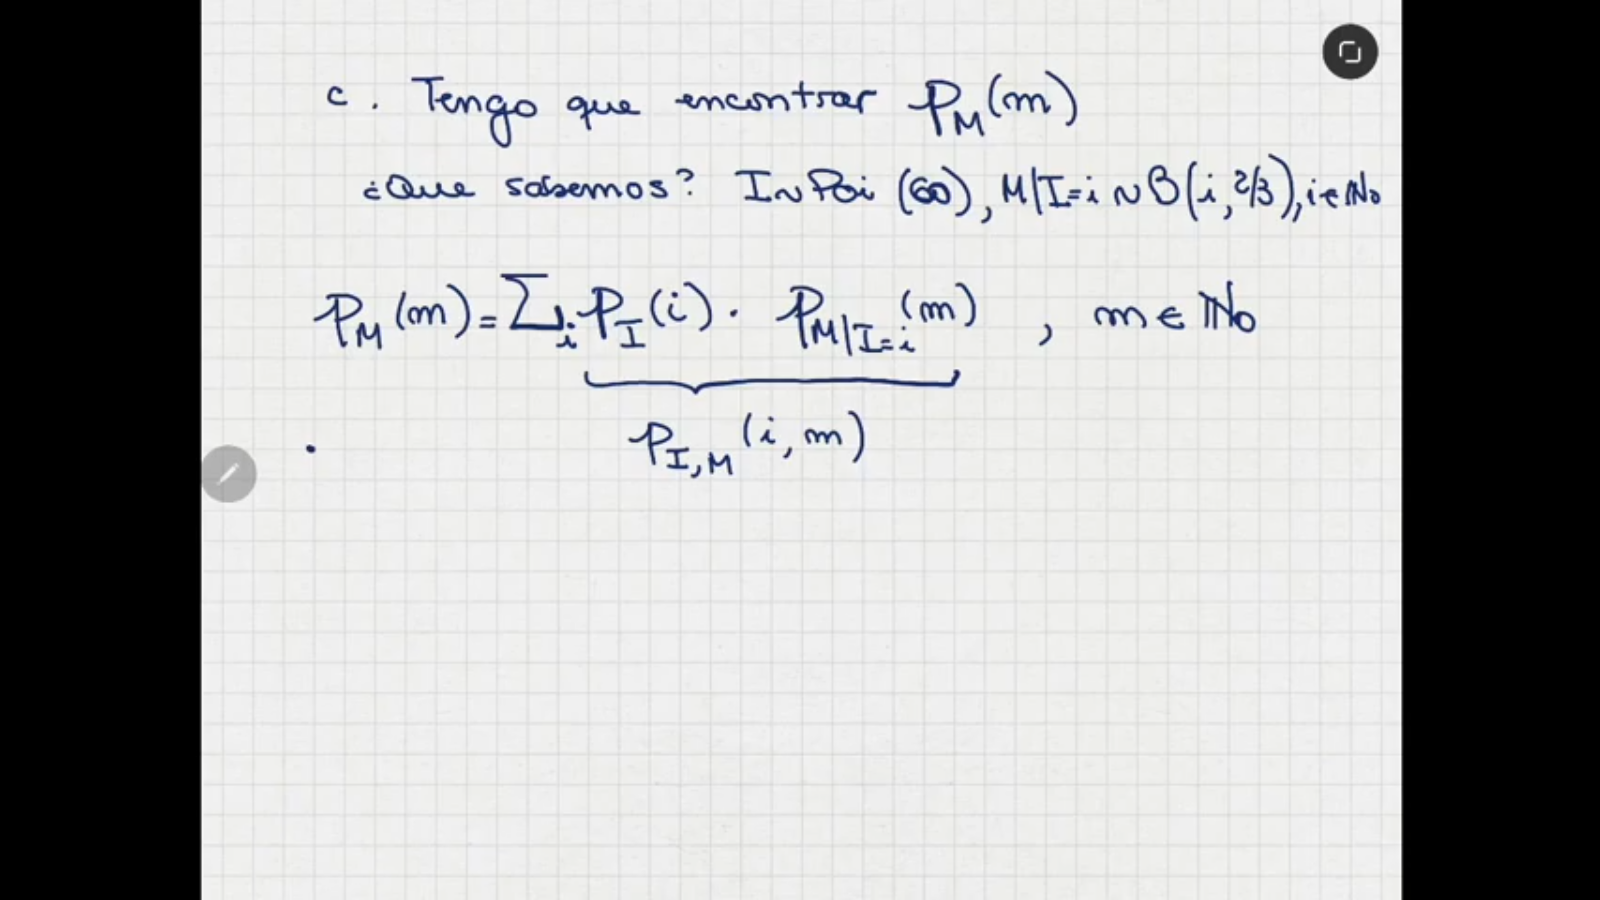 c. Tengo que encontrar p_M(m)
¿Que sabemos? I~Poi(60), M/I=i ~ B(i, 2/3), i∈ℕ₀
p_M(m) = Σ_i p_I(i) · p_{M/I=i}(m) , m ∈ ℕ₀
p_{I,M}(i,m)